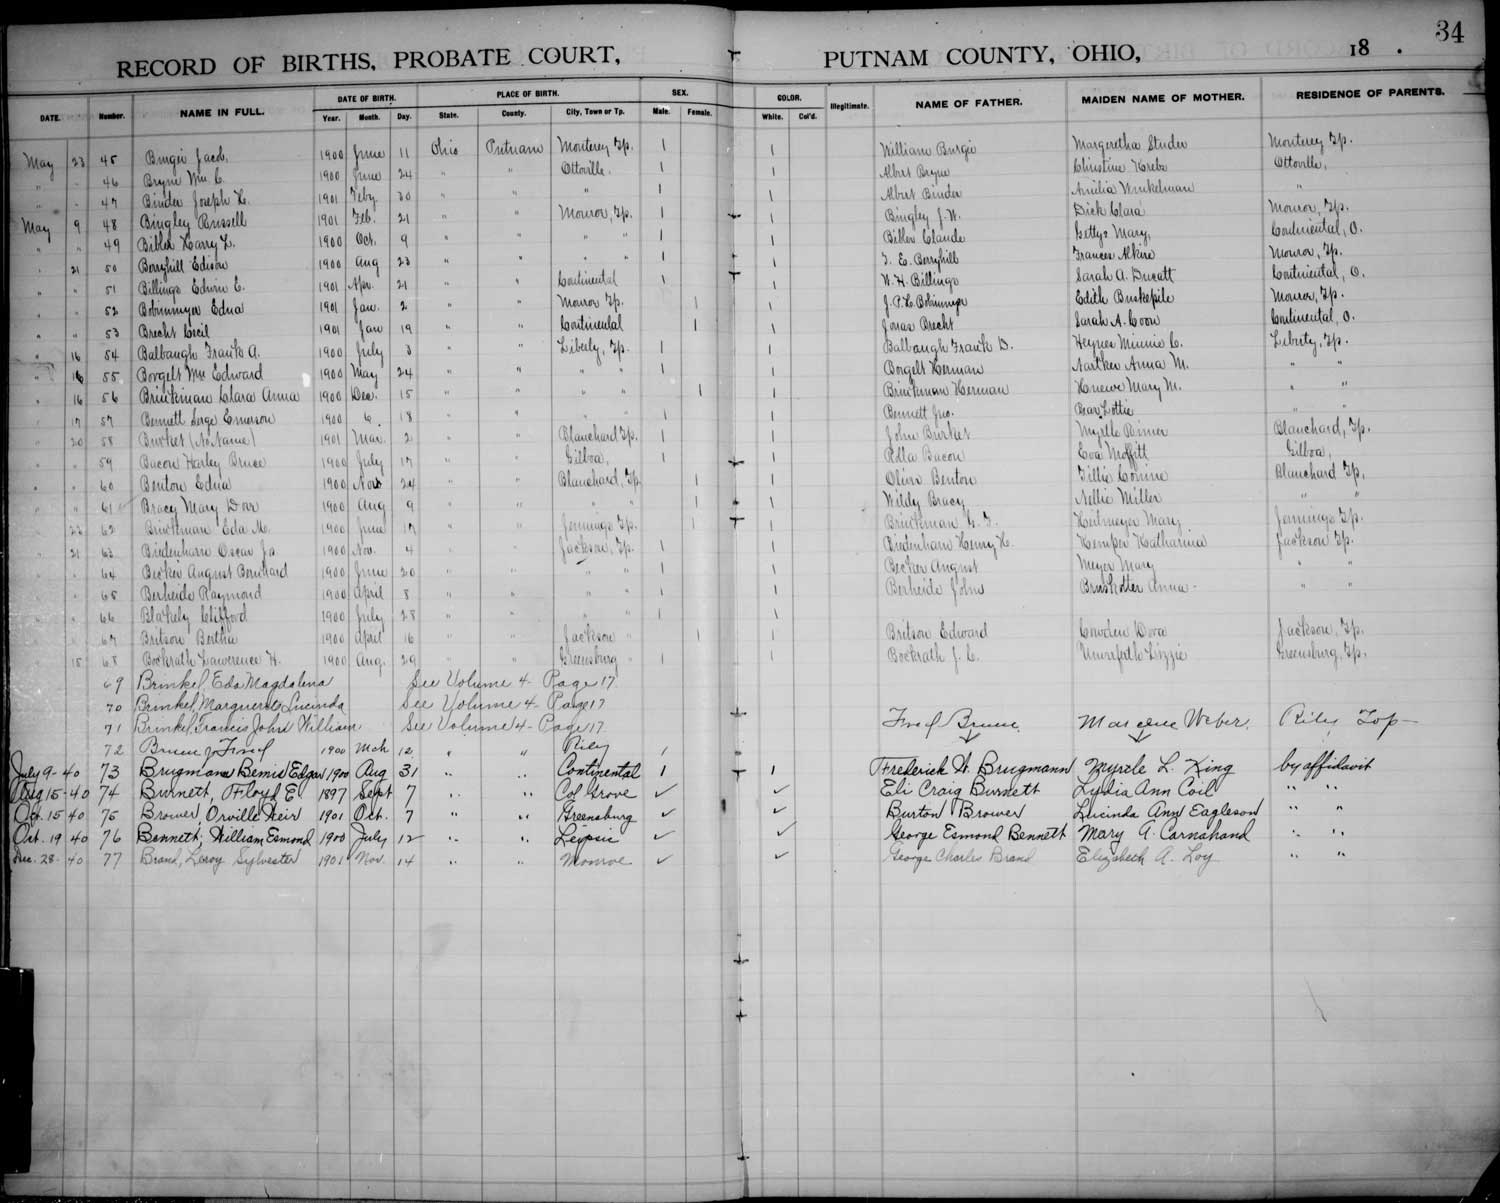 34
RECORD OF BIRTHS, PROBATE COURT, PUTNAM COUNTY, OHIO, 18 .
DATE. Number. NAME IN FULL. DATE OF BIRTH. PLACE OF BIRTH. SEX. COLOR. Illegitimate. NAME OF FATHER. MAIDEN NAME OF MOTHER. RESIDENCE OF PARENTS.
Year. Month. Day. State. County. City, Town or Tp. Male. Female. White. Col'd.
May 23 45 Jacob 1900 June 11 Ohio Putnam Monterey Tp. 1 1 William Burgei Margretha Studer Monterey Tp.
" " 46 Bryne Wm C. 1900 June 24 " " Ottoville. 1 1 Albert Bryne Christine Krebs Ottoville,
" " 47 Binder Joseph H. 1901 Feby. 20 " " " 1 1 Albert Binder Amelia Winkelman "
May 9 48 Bingley Russell 1901 Feb. 21 " " Monroe, Tp. 1 1 Bingley J. W. Dick Clara Monroe, Tp.
" " 49 Bibler Harry L. 1900 Oct. 9 " " " " 1 1 Bibler Claude Gettys Mary, Continental, O.
" 21 50 Berryhill Edison 1900 Aug 23 " " " " 1 1 T. E. Berryhill Frances Alkire Monroe, Tp.
" " 51 Billings Edwin E. 1901 Apr. 21 " " Continental 1 1 W. H. Billings Sarah A. Ducatt Continental, O.
" " 52 Bobinmyer Edna 1901 Jan. 2 " " Monroe Tp. 1 1 J. P. L. Bobinmyer Edith Buskepile Monroe, Tp.
" " 53 Brecht Cecil 1901 Jan 19 " " Continental 1 1 Jonas Brecht Sarah A. Coon Continental, O.
" 16 54 Balbaugh Frank A. 1900 July 3 " " Liberty, Tp. 1 1 Balbaugh Frank D. Heyner Minnie C. Liberty, Tp.
" 16 55 Borgelt Wm Edward 1900 May 24 " " " " 1 1 Borgelt Herman Nartker Anna M. " "
" 16 56 Brinkman Clara Anna 1900 Dec. 15 " " " " 1 1 Brinkman Herman Knewe Mary M. " "
" 17 57 Bennett Serge Emerson 1900 6. 18 " " " 1 1 Bennett Jno. Bear Lottie " "
" 20 58 Burket (No Name) 1901 Mar. 2 " " Blanchard Tp. 1 1 John Burket Myrtle Rimer Blanchard, Tp.
" " 59 Bacon Harley Bruce 1900 July 17 " " Gilboa, 1 1 Rolla Bacon Eva Moffitt Gilboa,
" " 60 Benton Edna 1900 Nov 24 " " Blanchard, Tp. 1 1 Oliver Benton Tillie Conine Blanchard Tp,
" " 61 Bracy Mary Dorr 1900 Aug 9 " " " " 1 1 Wildy Bracy Nellie Miller " "
" 23 62 Brinkman Eda M. 1900 June 17 " " Jennings Tp. 1 1 Brinkman Heitmeyer Mary Jennings Tp.
" 21 63 Bridenharn Oscar Ja 1900 Nov. 4 " Jackson, Tp. 1 1 Bridenharn Henry H. Kemper Katharina Jackson Tp.
" " 64 Becker August Bernhard 1900 June 20 " " " " 1 1 Becker August Meyer Mary " "
" " 65 Berheide Raymond 1900 April 8 " " " " 1 1 Berheide John Bruskotter Anna - " "
" " 66 Blakely Clifford 1900 July 28 " " " " 1 1
" " 67 Britson Bertha 1900 April 16 " " Jackson " 1 1 Britson Edward Cowden Dora Jackson, Tp.
" 15 68 Bockrath Lawerence H. 1900 Aug. 29 " " Greensburg " 1 1 Bockrath J. C. Unverferth Lizzie Greensburg, Tp.
69 Brinkel, Eda Magdalena See Volume 4 - Page 17.
70 Brinkel, Marguerete Lucinda See Volume 4 - Page 17
71 Brinkel, Francis John William See Volume 4 - Page 17.
72 Fred 1900 Mch 12 " " Riley 1 Fred Weber Riley Top -
July 9 - 40 73 Brugmann Bemis Edgar 1900 Aug 31 " " Continental 1 1 Frederick W. Brugmann Myrtle L. King by affidavit
Aug 15 - 40 74 Burnett, Floyd E. 1897 Sept 7 " " Col Grove ✓ ✓ Eli Craig Burnett Lydia Ann Coil " "
Oct. 15 40 75 Brower, Orville Keir 1901 Oct. 7 " " Greensburg ✓ ✓ Burton Brower Lucinda Ann Eagleson " "
Oct. 19 40 76 Bennett, William Esmond 1900 July 12 " " Leipsic ✓ ✓ George Esmond Bennett Mary A. Carnahand " "
Dec. 28 - 40 77 Brand, Leroy Sylvester 1901 Nov. 14 " " Monroe ✓ ✓ George Charles Brand Elizabeth A. Loy " "